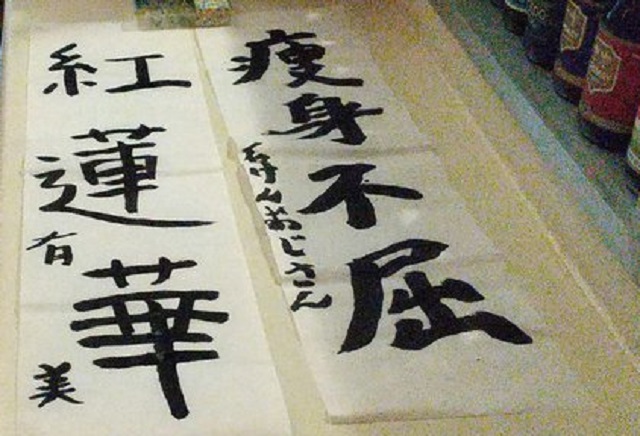 痩身不屈
けんおじさん
紅蓮華
有美